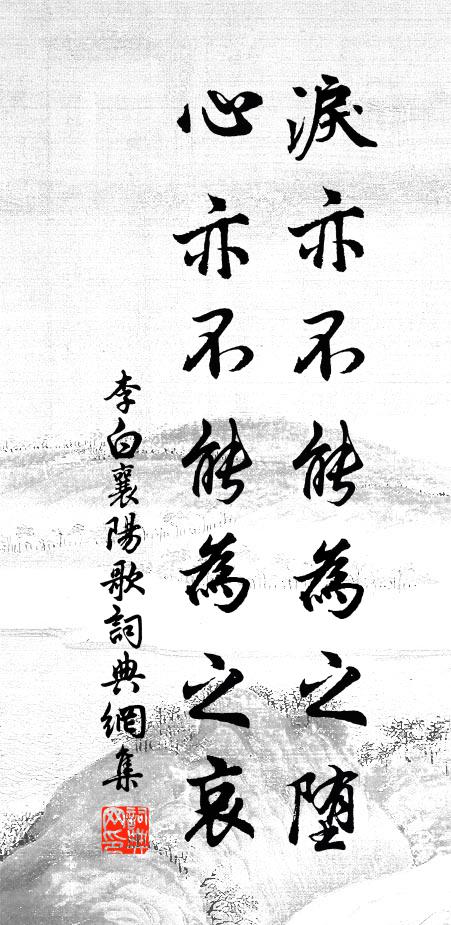 淚亦不能為之墮
心亦不能為之哀
李白襄陽歌詞典網集